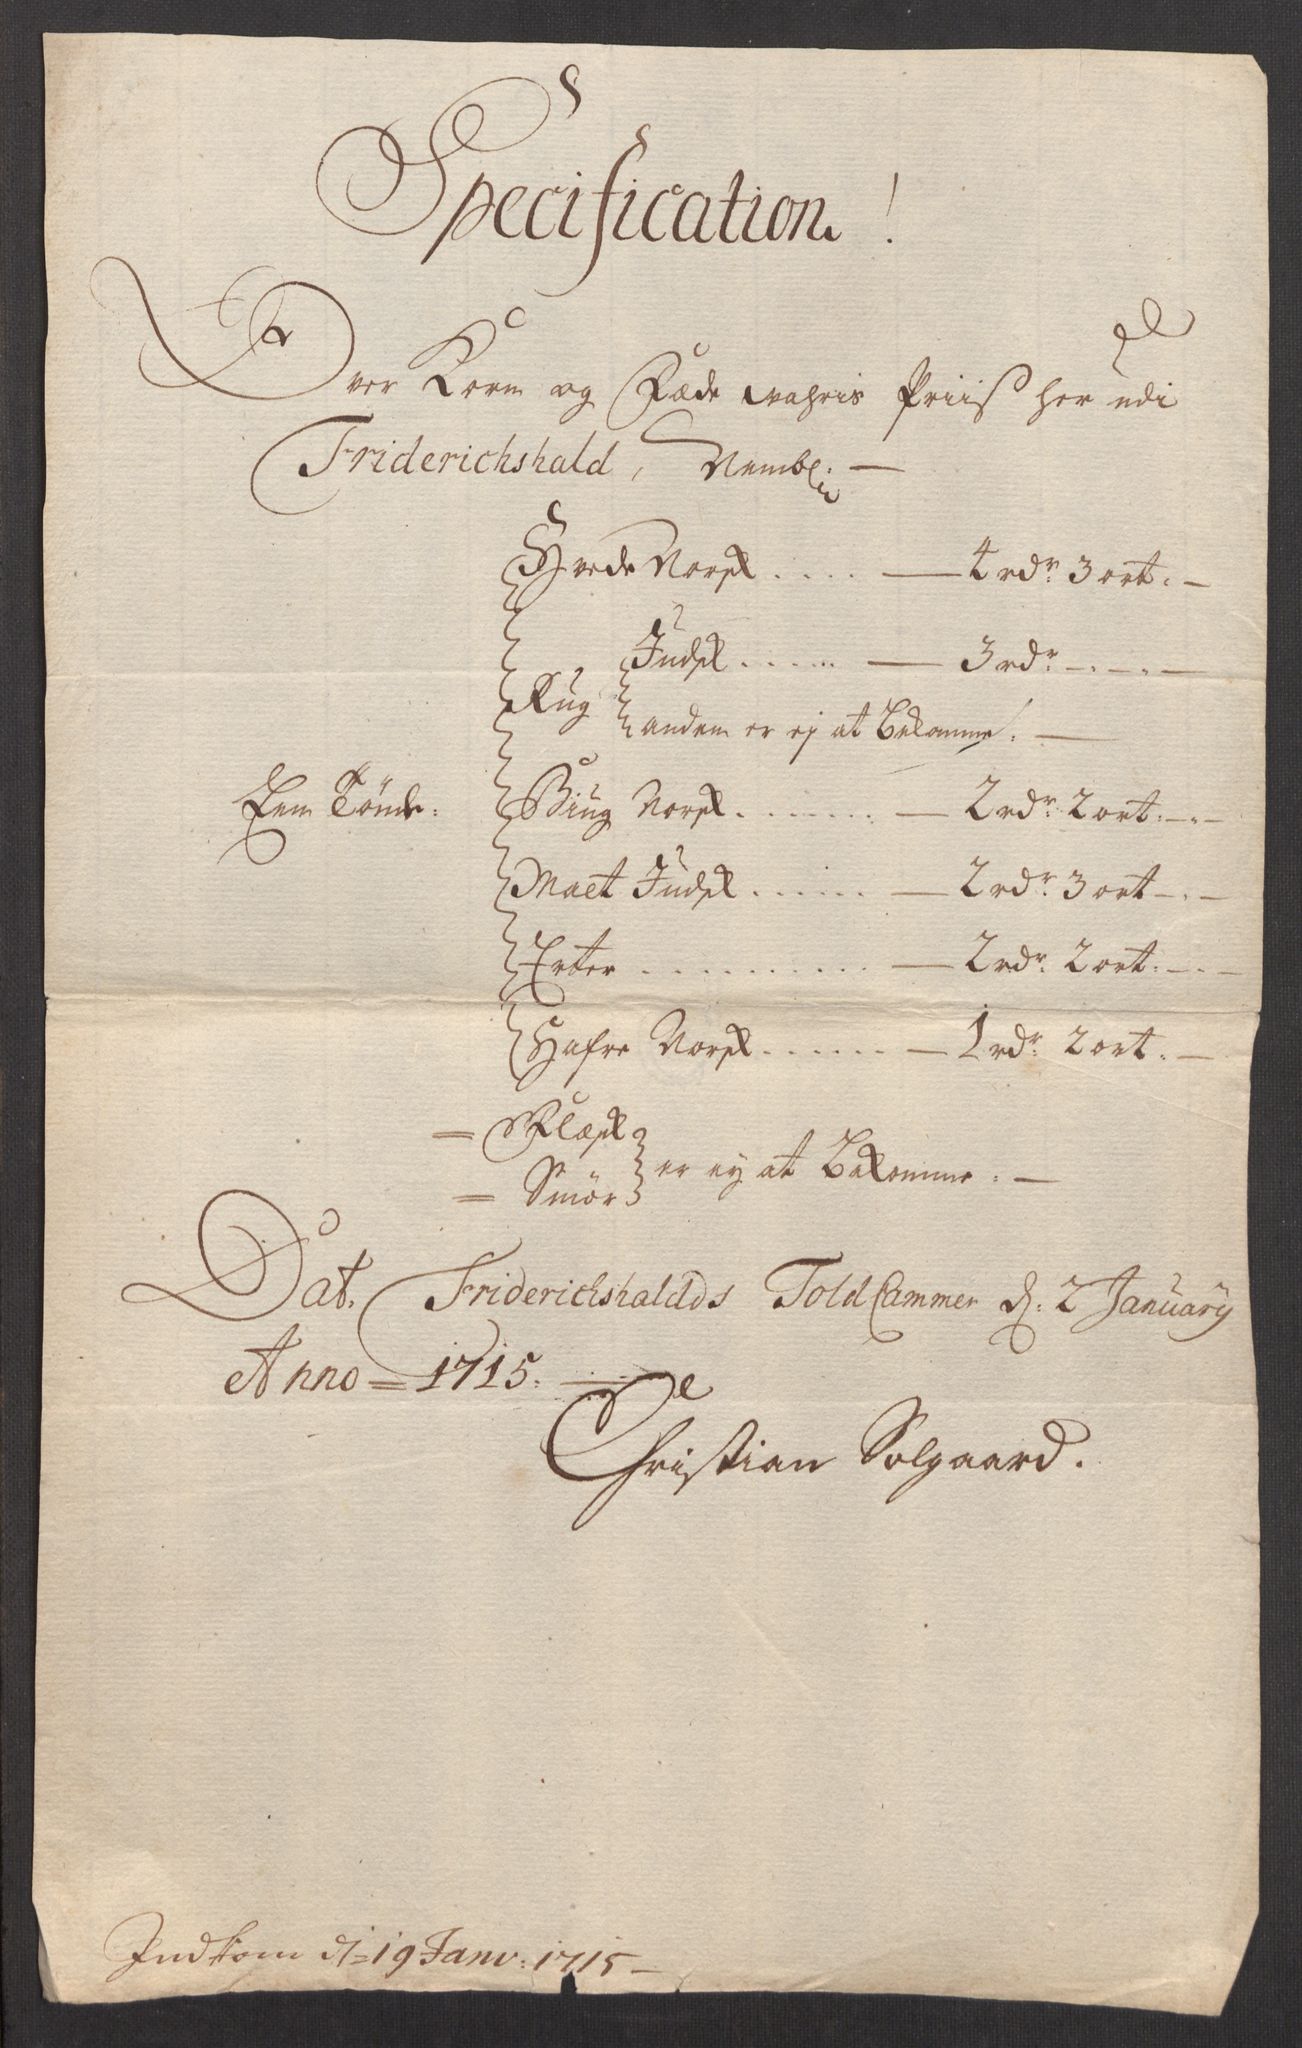 Specification!
Over Korn og Fæde wahris Priiß her udi
Friderichshald, Nembl:
Hvede Norsk ..... — 4 rdr. 3 ort. —
Judsk ...... — 3 rdr. —.—.—
Rug
anden er ej at Bekomme. —
Een Tønde: Biug Norsk ........ — 2 rdr. 2 ort. —.—
Maet Judsk ...... — 2 rdr. 3 ort —.—
Erter .......... — 2 rdr. 2 ort. —.—
Hafre Norsk ...... — 1 rdr. 2 ort. —
= Flæsk
er ej at Bekomme. —
= Smör
Dat. Friderichshaldds Told Cammer d. 2 January
Anno = 1715. —
Christian Solgaard.
Indkom d = 19 Janv: 1715 —